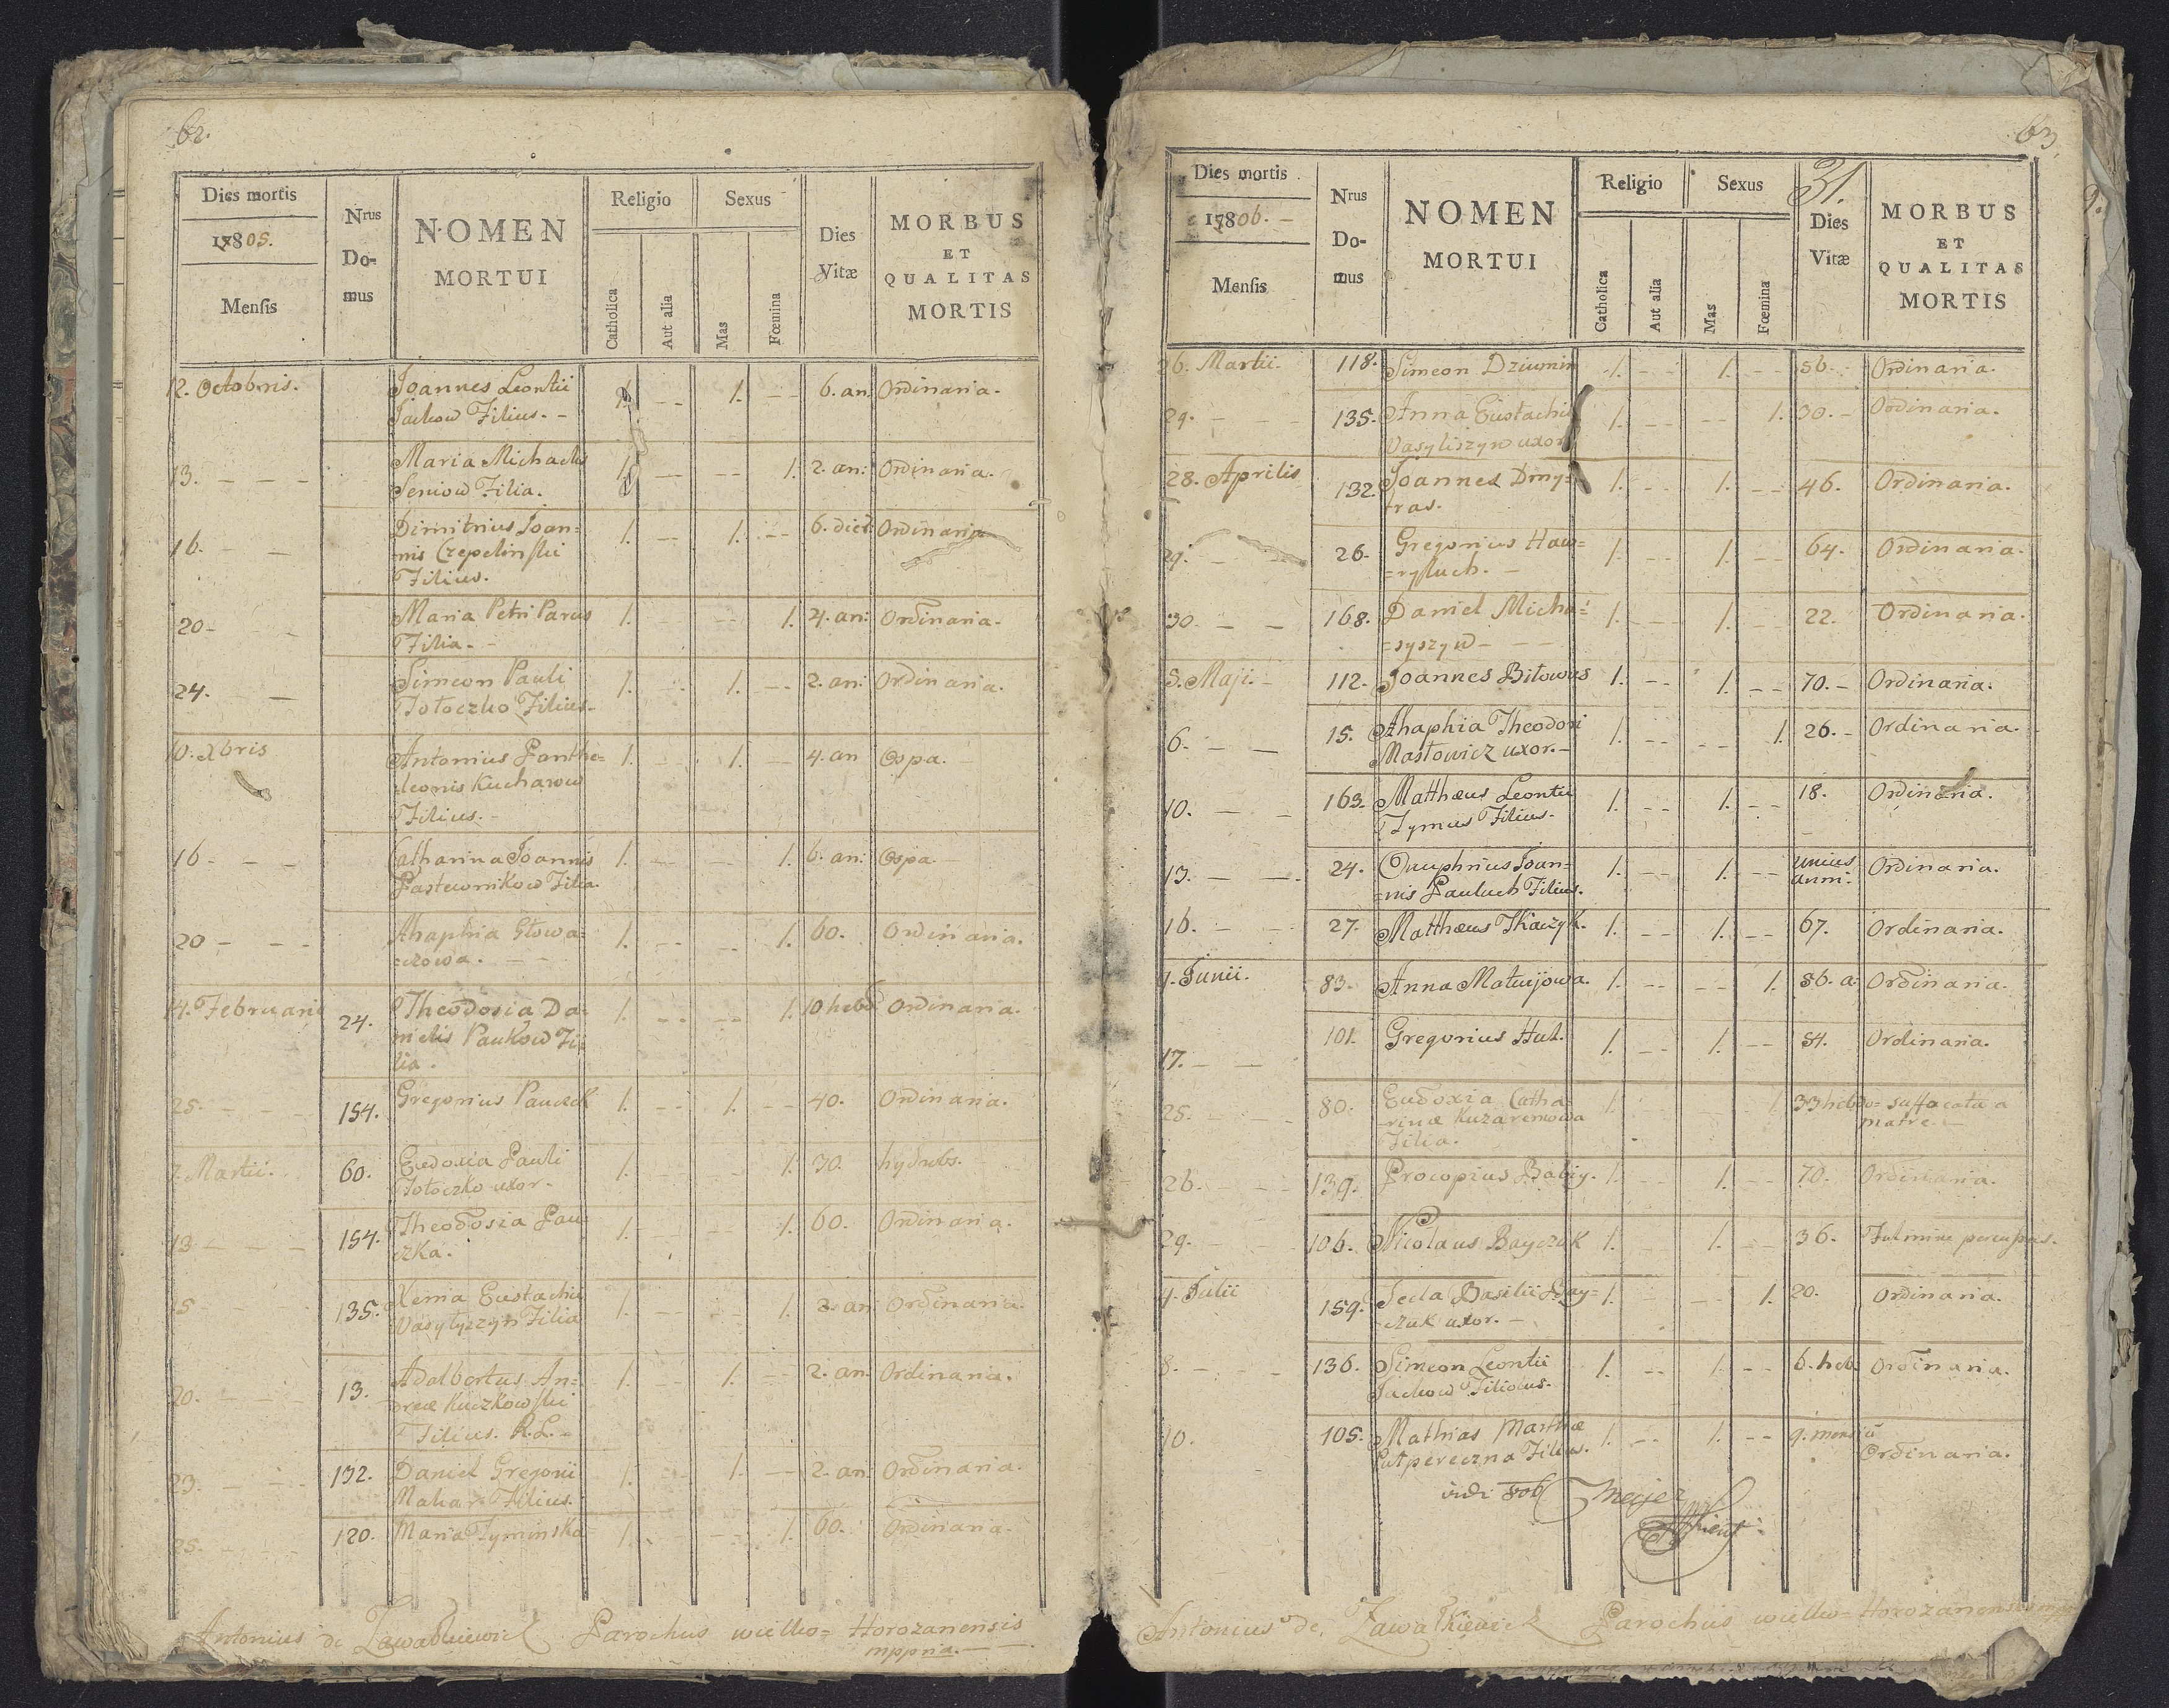 62.
Dies mortis
17805.
Mensis
Nrus Do- mus
NOMEN
MORTUI
Religio
Catholica
Aut alia
Sexus
Mas
Fœmina
Dies Vitæ
MORBUS
ET
QUALITAS
MORTIS
12. Octobris. Joannes Leontii 1. -- 1. -- 6. an: Ordinaria.
Jackow Filius. -
13. - - - Maria Michaelis 1. -- -- 1. 2. an: Ordinaria.
Seniow Filia.
16. - - Dimitrius Joan= 1. -- 1. -- 6. dies: Ordinaria
nis Czepelinski
Filius.
20 - - Maria Petri Parus 1. -- 1. 4. an: Ordinaria.
Filia. -
24. - Simeon Pauli 1. -- 1. -- 2. an: Ordinaria.
Tołoczko Filius -
10. Xbris Antonius Panthe= 1. -- 1. -- 4. an Ospa.
leonis Kucharow
Filius. -
16 - - - Catharina Joannis 1. -- -- 1. 6. an: Ospa.
Pastewnikow Filia.
20 - - - Ahaphia Głowa= 1. -- -- 1. 60. Ordinaria.
=czowa. - -
14. Februarii 24. Theodosia Da= 1. -- -- 1. 10 hebd Ordinaria.
nielis Paukow Fi=
lia.
25. - - - 154. Gregorius Pauczek 1. -- 1. -- 40. Ordinaria.
7. Martii. 60. Eudoxia Pauli 1. -- -- 1. 30. hydrobs.
Tołoczko uxor -
13 - - - 154. Theodosia Pau= 1. -- -- 1. 60. Ordinaria.
czka.
15 135. Xenia Eustachii 1. -- -- 1. 2. an Ordinaria.
Wasylyszyn Filia
20. - - - 13. Adalbertus An= 1. -- 1. -- 2. an. Ordinaria.
dreæ Kuczkowski
Filius. R.L. -
23. - - - 132. Daniel Gregorii 1. -- 1. -- 2. an: Ordinaria.
Mahar Filius.
25. - 120. Maria Tyminska 1. -- -- 1. 60. Ordinaria.
Antonius de Zawałkiewicz Parochus wielko= Horozanensis
mppria. -
63
31.
Dies mortis
17806. -
Mensis
Nrus Do- mus
NOMEN
MORTUI
Religio
Catholica
Aut alia
Sexus
Mas
Fœmina
Dies Vitæ
MORBUS
ET
QUALITAS
MORTIS
26. Martii. 118. Simeon Dziumin 1. -- 1. -- 56. - Ordinaria.
29. - - - 135. Anna Eustachii 1. -- -- 1. 30. - Ordinaria.
Wasyliszyn uxor
28. Aprilis 132. Joannes Dmy= 1. -- 1. -- 46. Ordinaria.
tras.
29. - - 26. Gregorius Haw= 1. -- 1. -- 64. Ordinaria.
=ryluch. -
30. - - 168. Daniel Micha= 1. -- 1. -- 22. Ordinaria.
=syszyn - - -
5. Maji. - 112. Joannes Bitowus 1. -- 1. -- 70. - Ordinaria.
6. - - 15. Ahaphia Theodori 1. -- -- 1. 26. - Ordinaria.
Mastowicz uxor. -
10. - - 163. Matthæus Leontii 1. -- 1. -- 18. Ordinaria.
Tymus Filius -
13. - - 24. Onuphrius Joan= 1. -- 1. -- unius anni. Ordinaria.
=nis Pauluch Filius.
16. - - 27. Matthæus Tkaczyk. 1. -- 1. -- 67. Ordinaria.
4. Junii. 83. Anna Matwijowa. 1. -- -- 1. 56. a: Ordinaria.
17. - - 101. Gregorius Hut. 1. -- 1. -- 54. Ordinaria.
25. - - 80. Eudoxia Catha= 1. 1. 33 hebdo= suffocata a
rinæ Kuzaremowa matre. -
Filia.
26. - - 139. Procopius Babiy. 1. -- 1. -- 70. Ordinaria.
29. - - 106. Nicolaus Bayczuk 1. -- 1. -- 36. Fulmine percussus.
4. Julii 159. Tecla Basilii Bay= 1. -- -- 1. 20. Ordinaria.
czuk uxor. -
8. - - - 136. Simeon Leontii 1. -- 1. -- 6. heb. Ordinaria.
Jackow Filiolus.
10. 105. Mathias Marthæ 1. -- 1. -- 9. mensiū Ordinaria.
Putpereczna Filius.
vidi
Antonius de Zawałkiewicz Parochus wielko= Horozanensis mpp